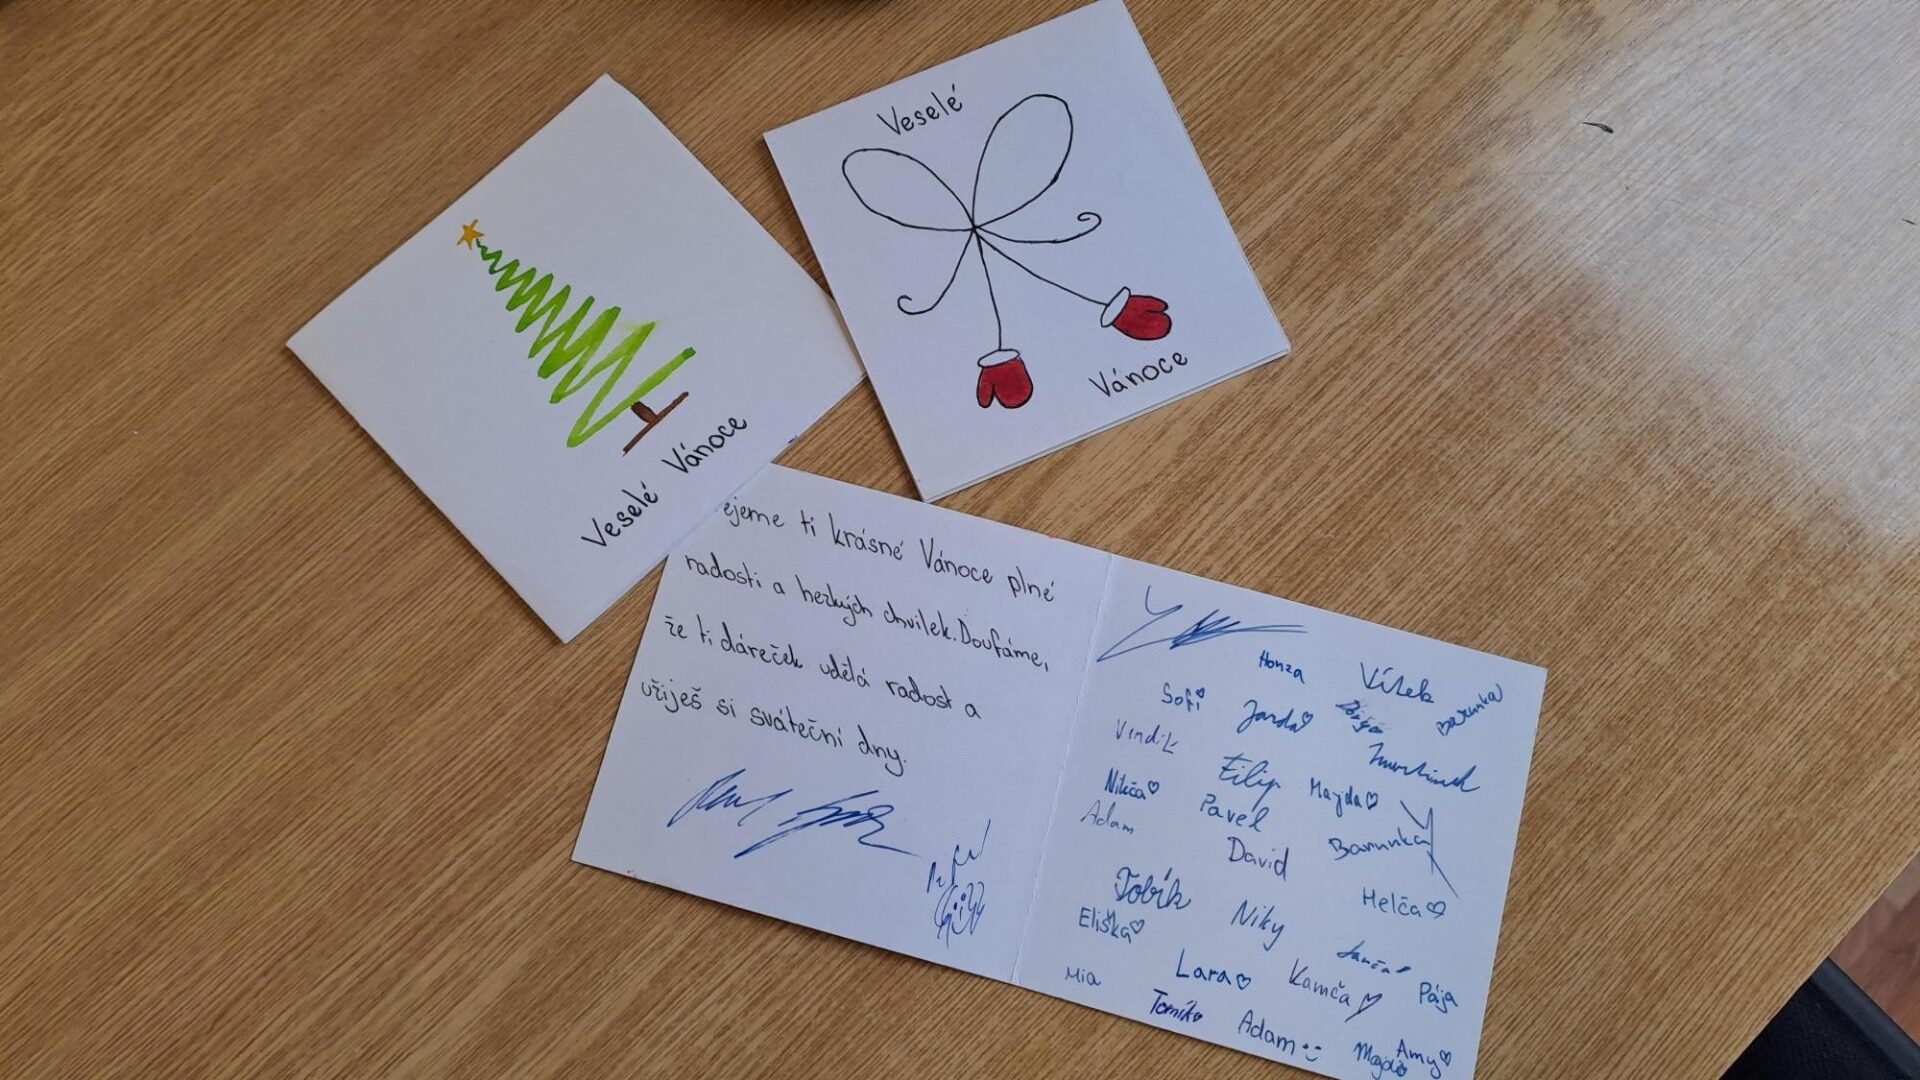 Veselé
Vánoce
Veselé Vánoce
ejeme ti krásné Vánoce plné
radosti a hezkých chvilek. Doufáme,
že ti dáreček udělá radost a
užiješ si sváteční dny.
Honza
Vítek
Barunka
Sofi
Jarda
Vendík
Filip
Majda
Nikča
Pavel
Adam
David
Barunka
Tobík
Niky
Helča
Eliška
Lara
Kamča
Pája
Mia
Tomík
Adam
Amy
Magda